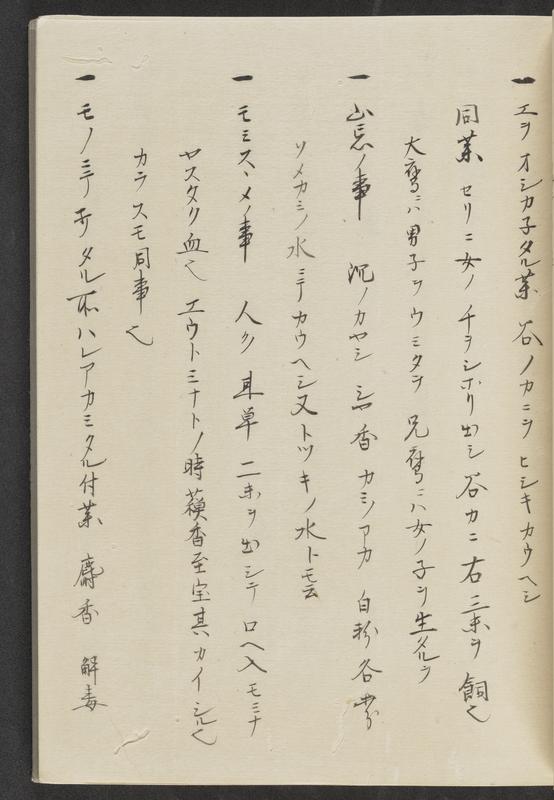 一 エヲオシカ子タル薬 谷ノカニヲヒシキカウヘシ
同薬 セリニ女ノチヲシホリ出シ谷カニ右三味ヲ飼也
大鷹ニハ男子ヲウミタヲ 兄鷹ニハ女ノ子ヲ生タルヲ
一 山忘ノ事 沉ノカヤシ 香 カシノアカ 白粉各等分
ソメカミノ水ニテカウヘシ又トツキノ水ト云云
一 モミスヽメノ事 人ク 草 二味ヲ出シテロヘ入モミナ
ヤスタクノ血也 エウトミナトノ時 香至宝其カイシルへ
カラスモ同事也
一 モノミテホタル所ハレアカミタル付薬 麝香 解毒